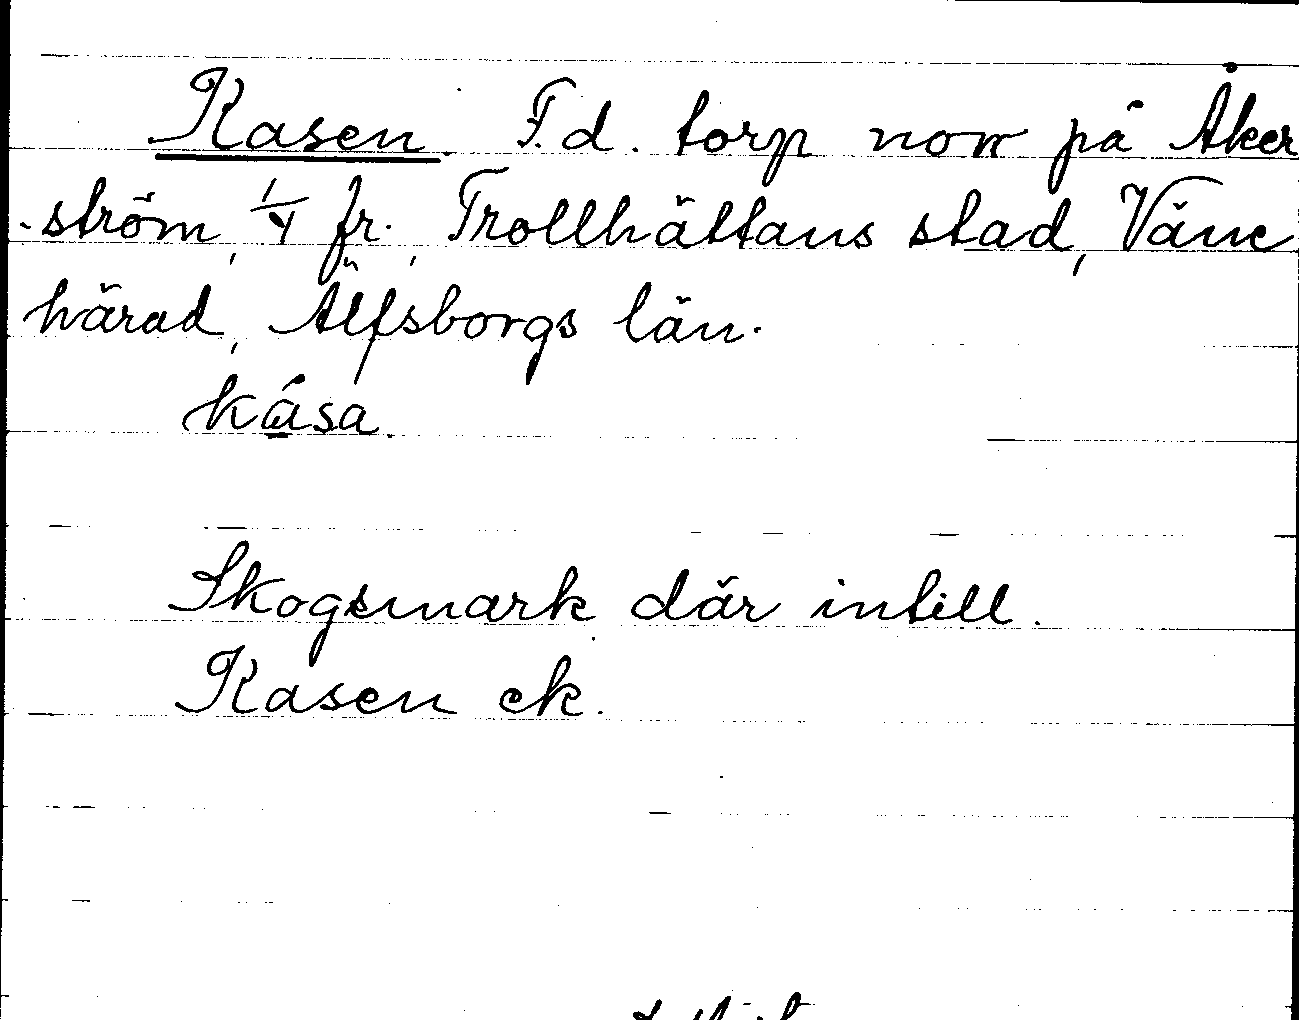 Kasen. F.d. torp norr på Åker
ström, 1/4 fr., Trollhättans stad, Väne
härad, Älfsborgs län.
kása
Skogsmark där intill.
Kasen ek.